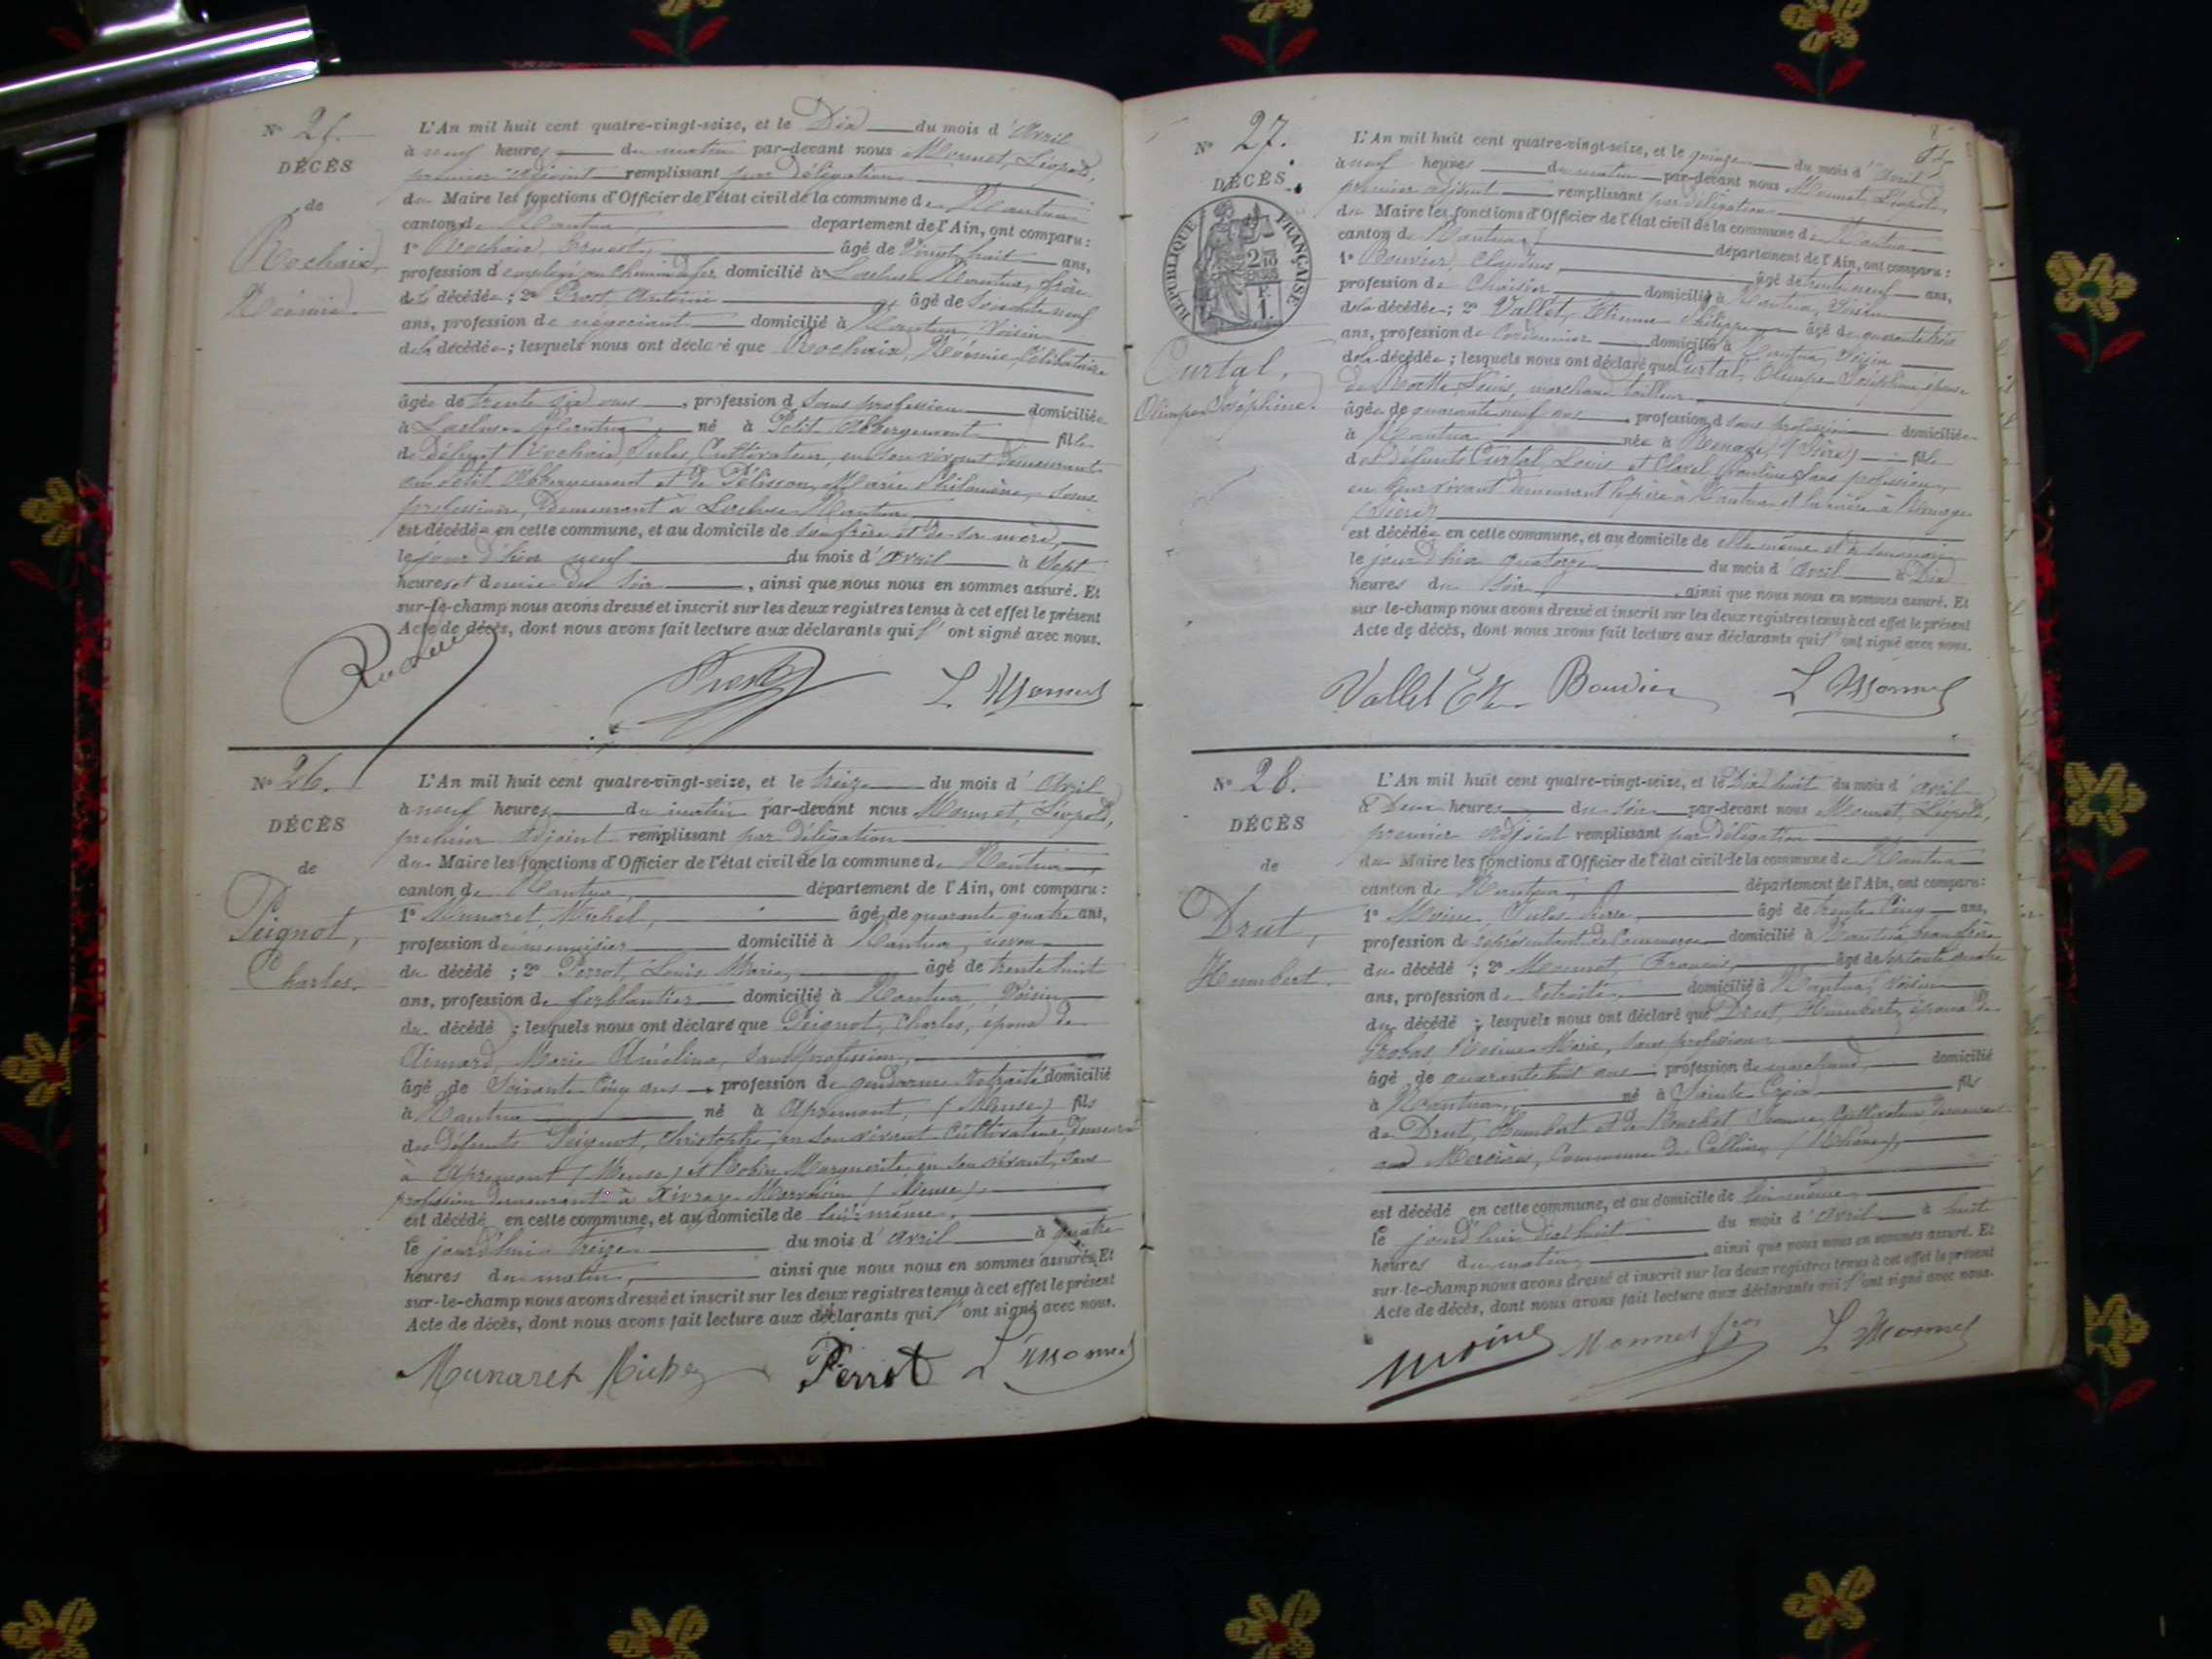 N° 25.
DÉCÈS
de
Rochaix,
Noémie.
L'An mil huit cent quatre-vingt-seize, et le Dix du mois d'Avril
à neuf heures du matin par-devant nous Monnet, Léopold,
premier adjoint remplissant par délégation
du Maire les fonctions d'Officier de l'état civil de la commune de Nantua
canton de Nantua, département de l'Ain, ont comparu :
1° Rochaix, Ernest, âgé de Vingt huit ans,
profession d'employé au chemin de fer domicilié à Nantua, frère
de la décédée ; 2° Prost, Antoine âgé de Soixante neuf
ans, profession de négociant domicilié à Nantua, Voisin
de la décédée ; lesquels nous ont déclaré que Rochaix, Noémie, Célibataire
âgée de trente six ans, profession d Sans profession domiciliée
à Nantua, né à Petit Abbergement fille
de défunt Rochaix, Jules, Cultivateur, en son vivant demeurant
au Petit Abbergement et de Pélisson, Marie Philomène, sans
profession, demeurant à Nantua,
est décédée en cette commune, et au domicile de son frère et de sa mère,
le jour d'hier neuf du mois d'Avril à Sept
heures et demie du Soir, ainsi que nous nous en sommes assuré. Et
sur-le-champ nous avons dressé et inscrit sur les deux registres tenus à cet effet le présent
Acte de décès, dont nous avons fait lecture aux déclarants qui l'ont signé avec nous.
Prost L. Monnet
N° 26.
DÉCÈS
de
Peignot,
Charles.
L'An mil huit cent quatre-vingt-seize, et le treize du mois d'Avril
à neuf heures du matin par-devant nous Monnet, Léopold,
premier adjoint remplissant par délégation
du Maire les fonctions d'Officier de l'état civil de la commune de Nantua,
canton de Nantua, département de l'Ain, ont comparu :
1° Munaret, Michel, âgé de quarante quatre ans,
profession de menuisier domicilié à Nantua, neveu
du décédé ; 2° Perrot, Louis Marie, âgé de trente huit
ans, profession de ferblantier domicilié à Nantua, Voisin
du décédé ; lesquels nous ont déclaré que Peignot, Charles, époux de
Aimard, Marie Améline, sans profession,
âgé de Soixante Cinq ans profession de gendarme retraité domicilié
à Nantua né à Apremont, (Meuse) fils
des défunts Peignot, Christophe, en son vivant Cultivateur, demeurant
à Apremont (Meuse) et Robin Marguerite en son vivant, sans
profession demeurant à Xivray-Marvoisin (Meuse).
est décédé en cette commune, et au domicile de lui-même,
le jourd'hui treize du mois d'Avril à quatre
heures du matin, ainsi que nous nous en sommes assurés. Et
sur-le-champ nous avons dressé et inscrit sur les deux registres tenus à cet effet le présent
Acte de décès, dont nous avons fait lecture aux déclarants qui l'ont signé avec nous.
Munaret Michel Perrot L. Monnet
N° 27.
DÉCÈS
RÉPUBLIQUE FRANÇAISE
Curtal,
Olimpe Joséphine.
L'An mil huit cent quatre-vingt-seize, et le quinze du mois d'Avril
à neuf heures du matin par-devant nous Monnet, Léopold,
premier adjoint remplissant par délégation
du Maire les fonctions d'Officier de l'état civil de la commune de Nantua
canton de Nantua, département de l'Ain, ont comparu :
1° Bouvier, Claudius âgé de trente neuf ans,
profession de domicilié à Nantua, Voisin
de la décédée ; 2° Vallet, Etienne Philippe âgé de quarante trois
ans, profession de Cordonnier domicilié à Nantua, Voisin
de la décédée ; lesquels nous ont déclaré que Curtal, Olimpe Joséphine épouse
de Louis, marchand tailleur
âgée de quarante neuf ans, profession d sans profession domiciliée
à Nantua née à (Isère) fille
des défunts Curtal, Louis et Clavel, Pauline, Sans profession,
en leur vivant demeurant le père à Nantua et la mère à
(Isère)
est décédée en cette commune, et au domicile de elle même et de son mari
le jour d'hier quatorze du mois d'Avril à Dix
heures du Soir, ainsi que nous nous en sommes assuré. Et
sur-le-champ nous avons dressé et inscrit sur les deux registres tenus à cet effet le présent
Acte de décès, dont nous avons fait lecture aux déclarants qui l'ont signé avec nous.
Vallet Bouvier L. Monnet
N° 28.
DÉCÈS
de
Drut,
Humbert.
L'An mil huit cent quatre-vingt-seize, et le Dix huit du mois d'Avril
à Deux heures du Soir par-devant nous Monnet, Léopold,
premier adjoint remplissant par délégation
du Maire les fonctions d'Officier de l'état civil de la commune de Nantua
canton de Nantua, département de l'Ain, ont comparu :
1° Moine, Jules Pierre, âgé de trente Cinq ans,
profession de représentant de Commerce domicilié à Nantua, beau frère
du décédé ; 2° Monnet, François, âgé de quatre
ans, profession de retraité, domicilié à Nantua, Voisin
du décédé ; lesquels nous ont déclaré que Drut, Humbert, époux de
Marie, sans profession
âgé de quarante huit ans, profession de marchand, domicilié
à Nantua, né à Sainte fils
de Drut, Humbert et de Cultivateurs, demeurant
Commune de (Rhône),
est décédé en cette commune, et au domicile de lui-même,
le jourd'hui dix huit du mois d'Avril à huit
heures du matin, ainsi que nous nous en sommes assuré. Et
sur-le-champ nous avons dressé et inscrit sur les deux registres tenus à cet effet le présent
Acte de décès, dont nous avons fait lecture aux déclarants qui l'ont signé avec nous.
Moine Monnet L. Monnet